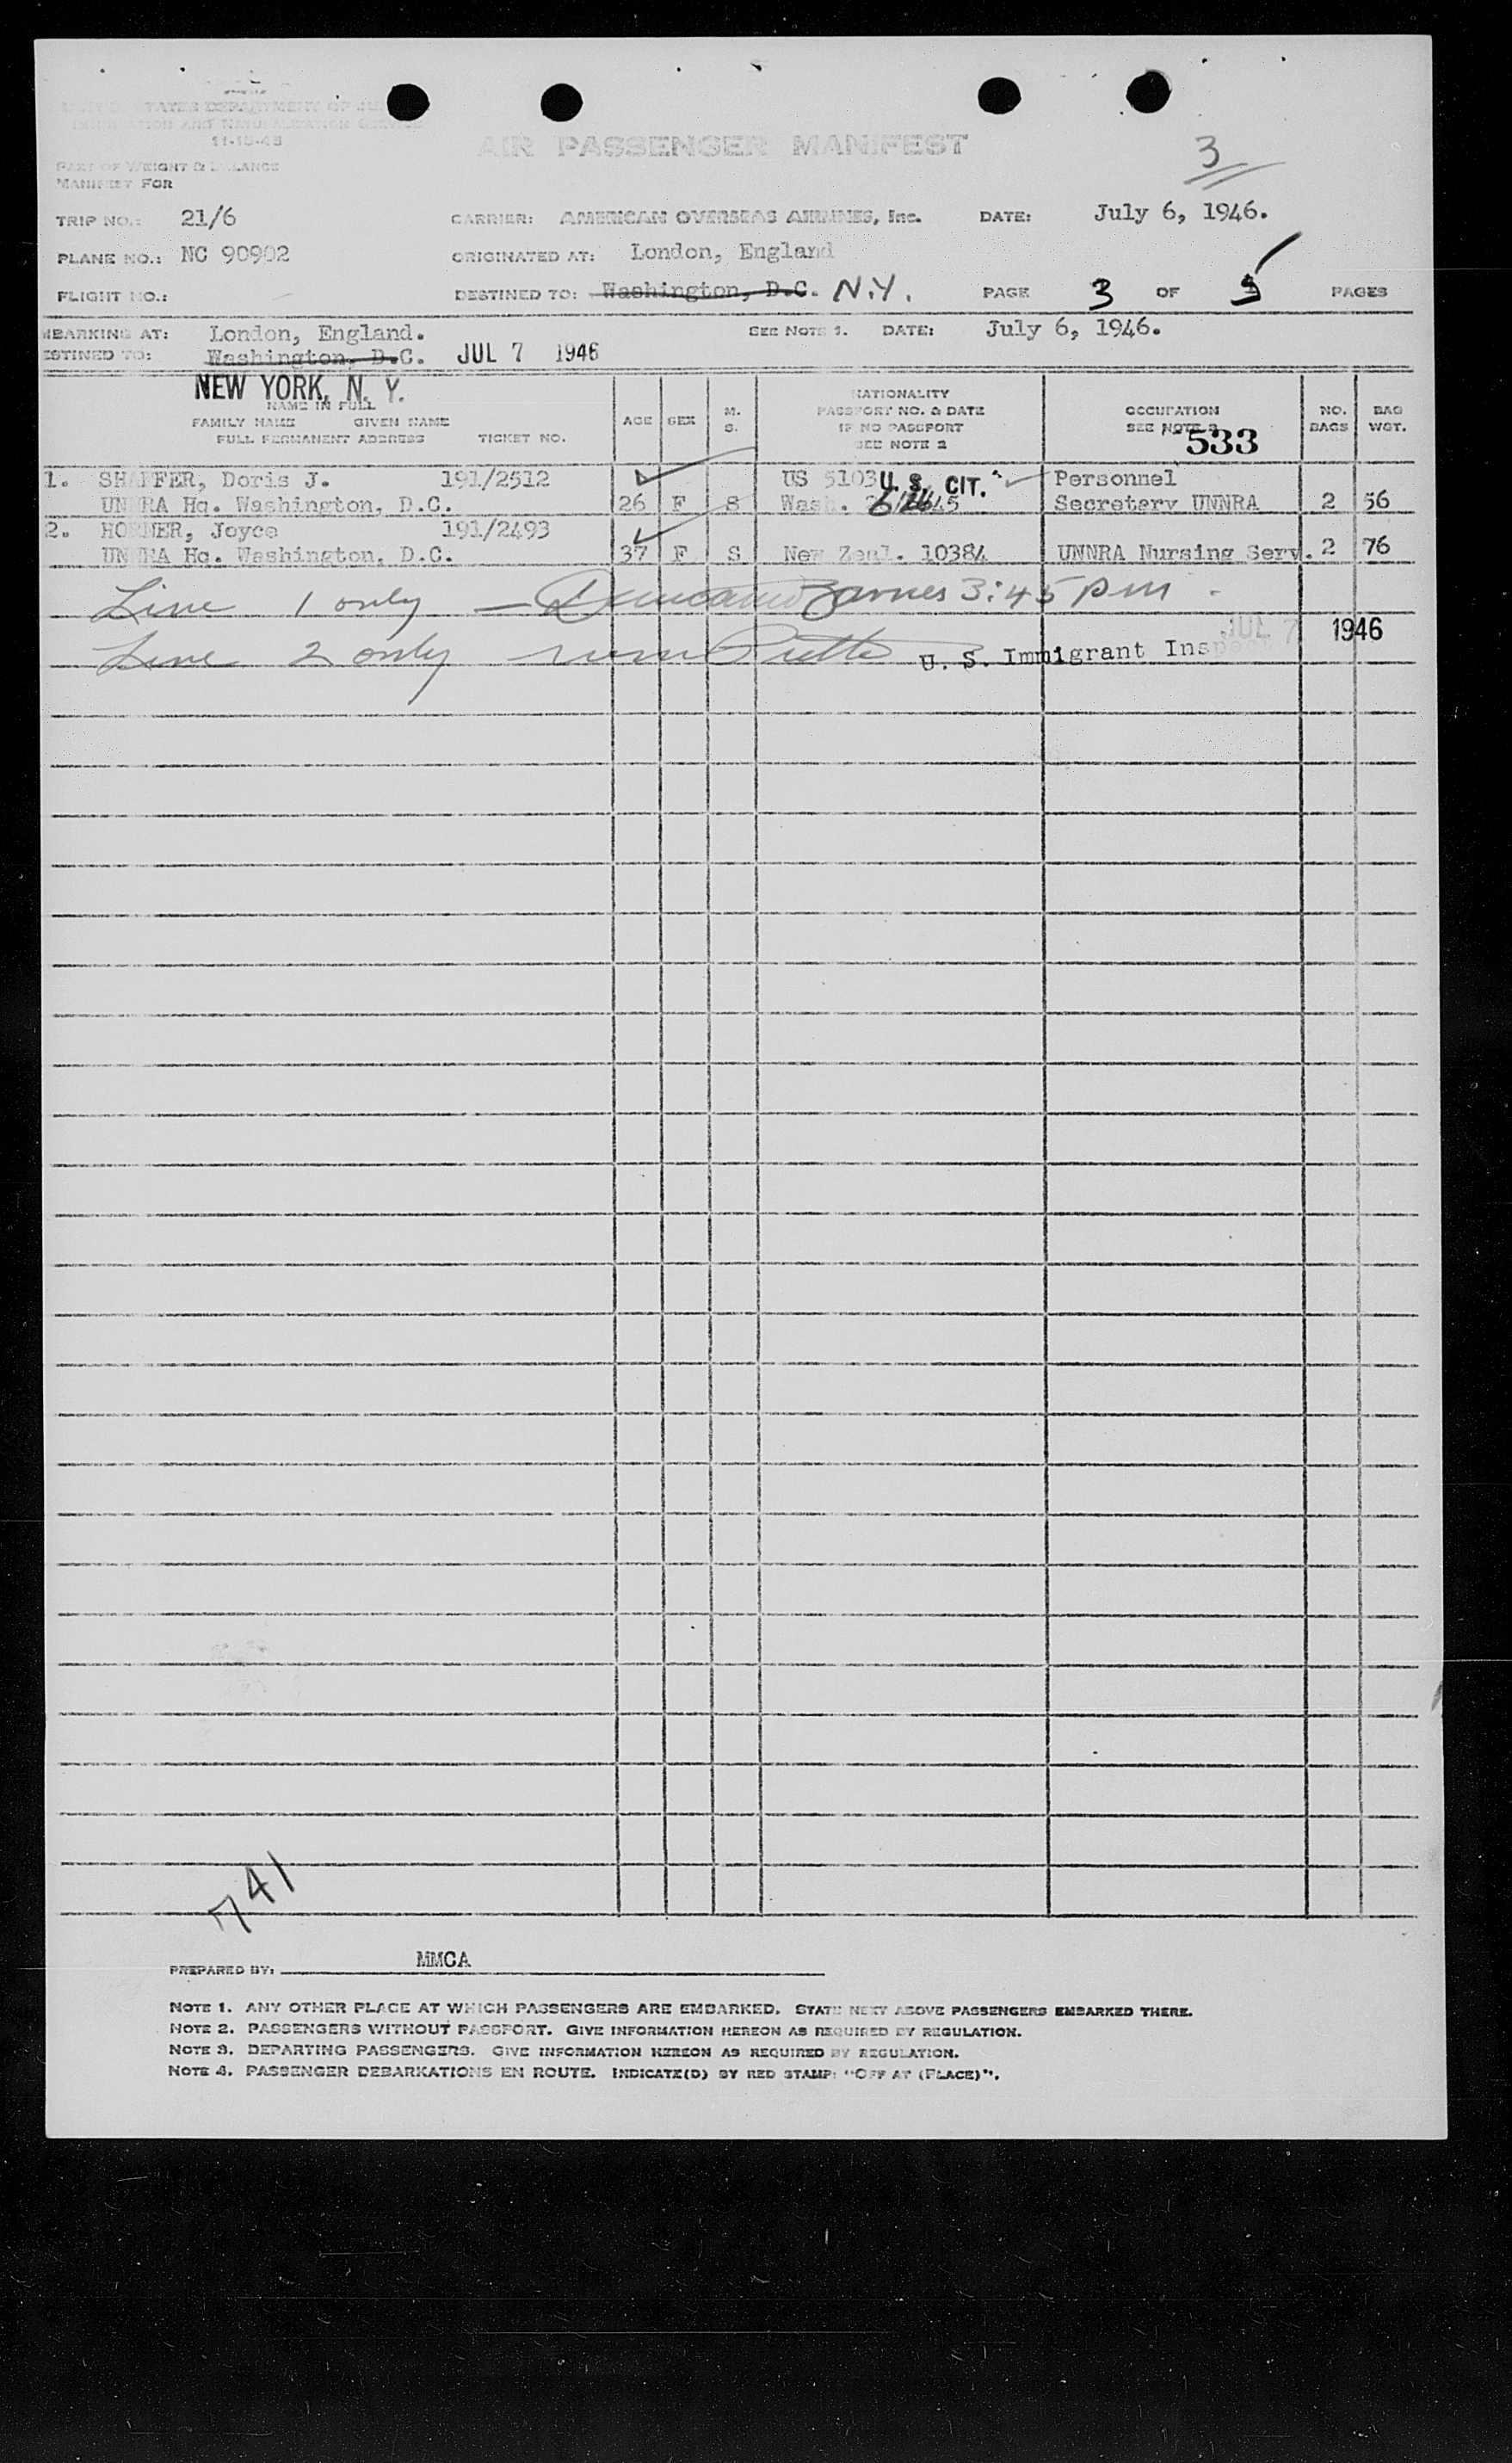 11-15-43
AIR PASSENGER MANIFEST
3
PART OF WEIGHT &
MANIFEST FOR
TRIP NO.: 21/6 CARRIER: AMERICAN OVERSEAS AIRLINES, Inc. DATE: July 6, 1946.
PLANE NO.: NC 90902 ORIGINATED AT: London, England
FLIGHT NO.: DESTINED TO: Washington, D.C. N.Y. PAGE 3 OF 5 PAGES
MBARKING AT: London, England. SEE NOTE 1. DATE: July 6, 1946.
ESTINED TO: Washington, D.C. JUL 7 1946
NEW YORK, N. Y.
NAME IN FULL
FAMILY NAME GIVEN NAME
FULL PERMANENT ADDRESS TICKET NO. AGE SEX M. S. NATIONALITY PASSPORT NO. & DATE IF NO PASSPORT SEE NOTE 2 OCCUPATION SEE NOTE 3 NO. BAGS BAG WGT.
533
1. SHAFFER, Doris J. 191/2512 US 5103 U. S. CIT. Personnel
UNRRA Hq. Washington, D.C. 26 F S Wash. Secretary UNNRA 2 56
2. HORNER, Joyce 191/2493
UNRRA Hq. Washington, D.C. 37 F S New Zeal. 10384 UNNRA Nursing Serv. 2 76
Line 1 only — 3:45 pm.
JUL 7 1946
Line 2 only U. S. Immigrant Inspect
741
PREPARED BY: MMCA
NOTE 1. ANY OTHER PLACE AT WHICH PASSENGERS ARE EMBARKED. STATE NEXT ABOVE PASSENGERS EMBARKED THERE.
NOTE 2. PASSENGERS WITHOUT PASSPORT. GIVE INFORMATION HEREON AS REQUIRED BY REGULATION.
NOTE 3. DEPARTING PASSENGERS. GIVE INFORMATION HEREON AS REQUIRED BY REGULATION.
NOTE 4. PASSENGER DEBARKATIONS EN ROUTE. INDICATE(D) BY RED STAMP: "OFF AT (PLACE)".